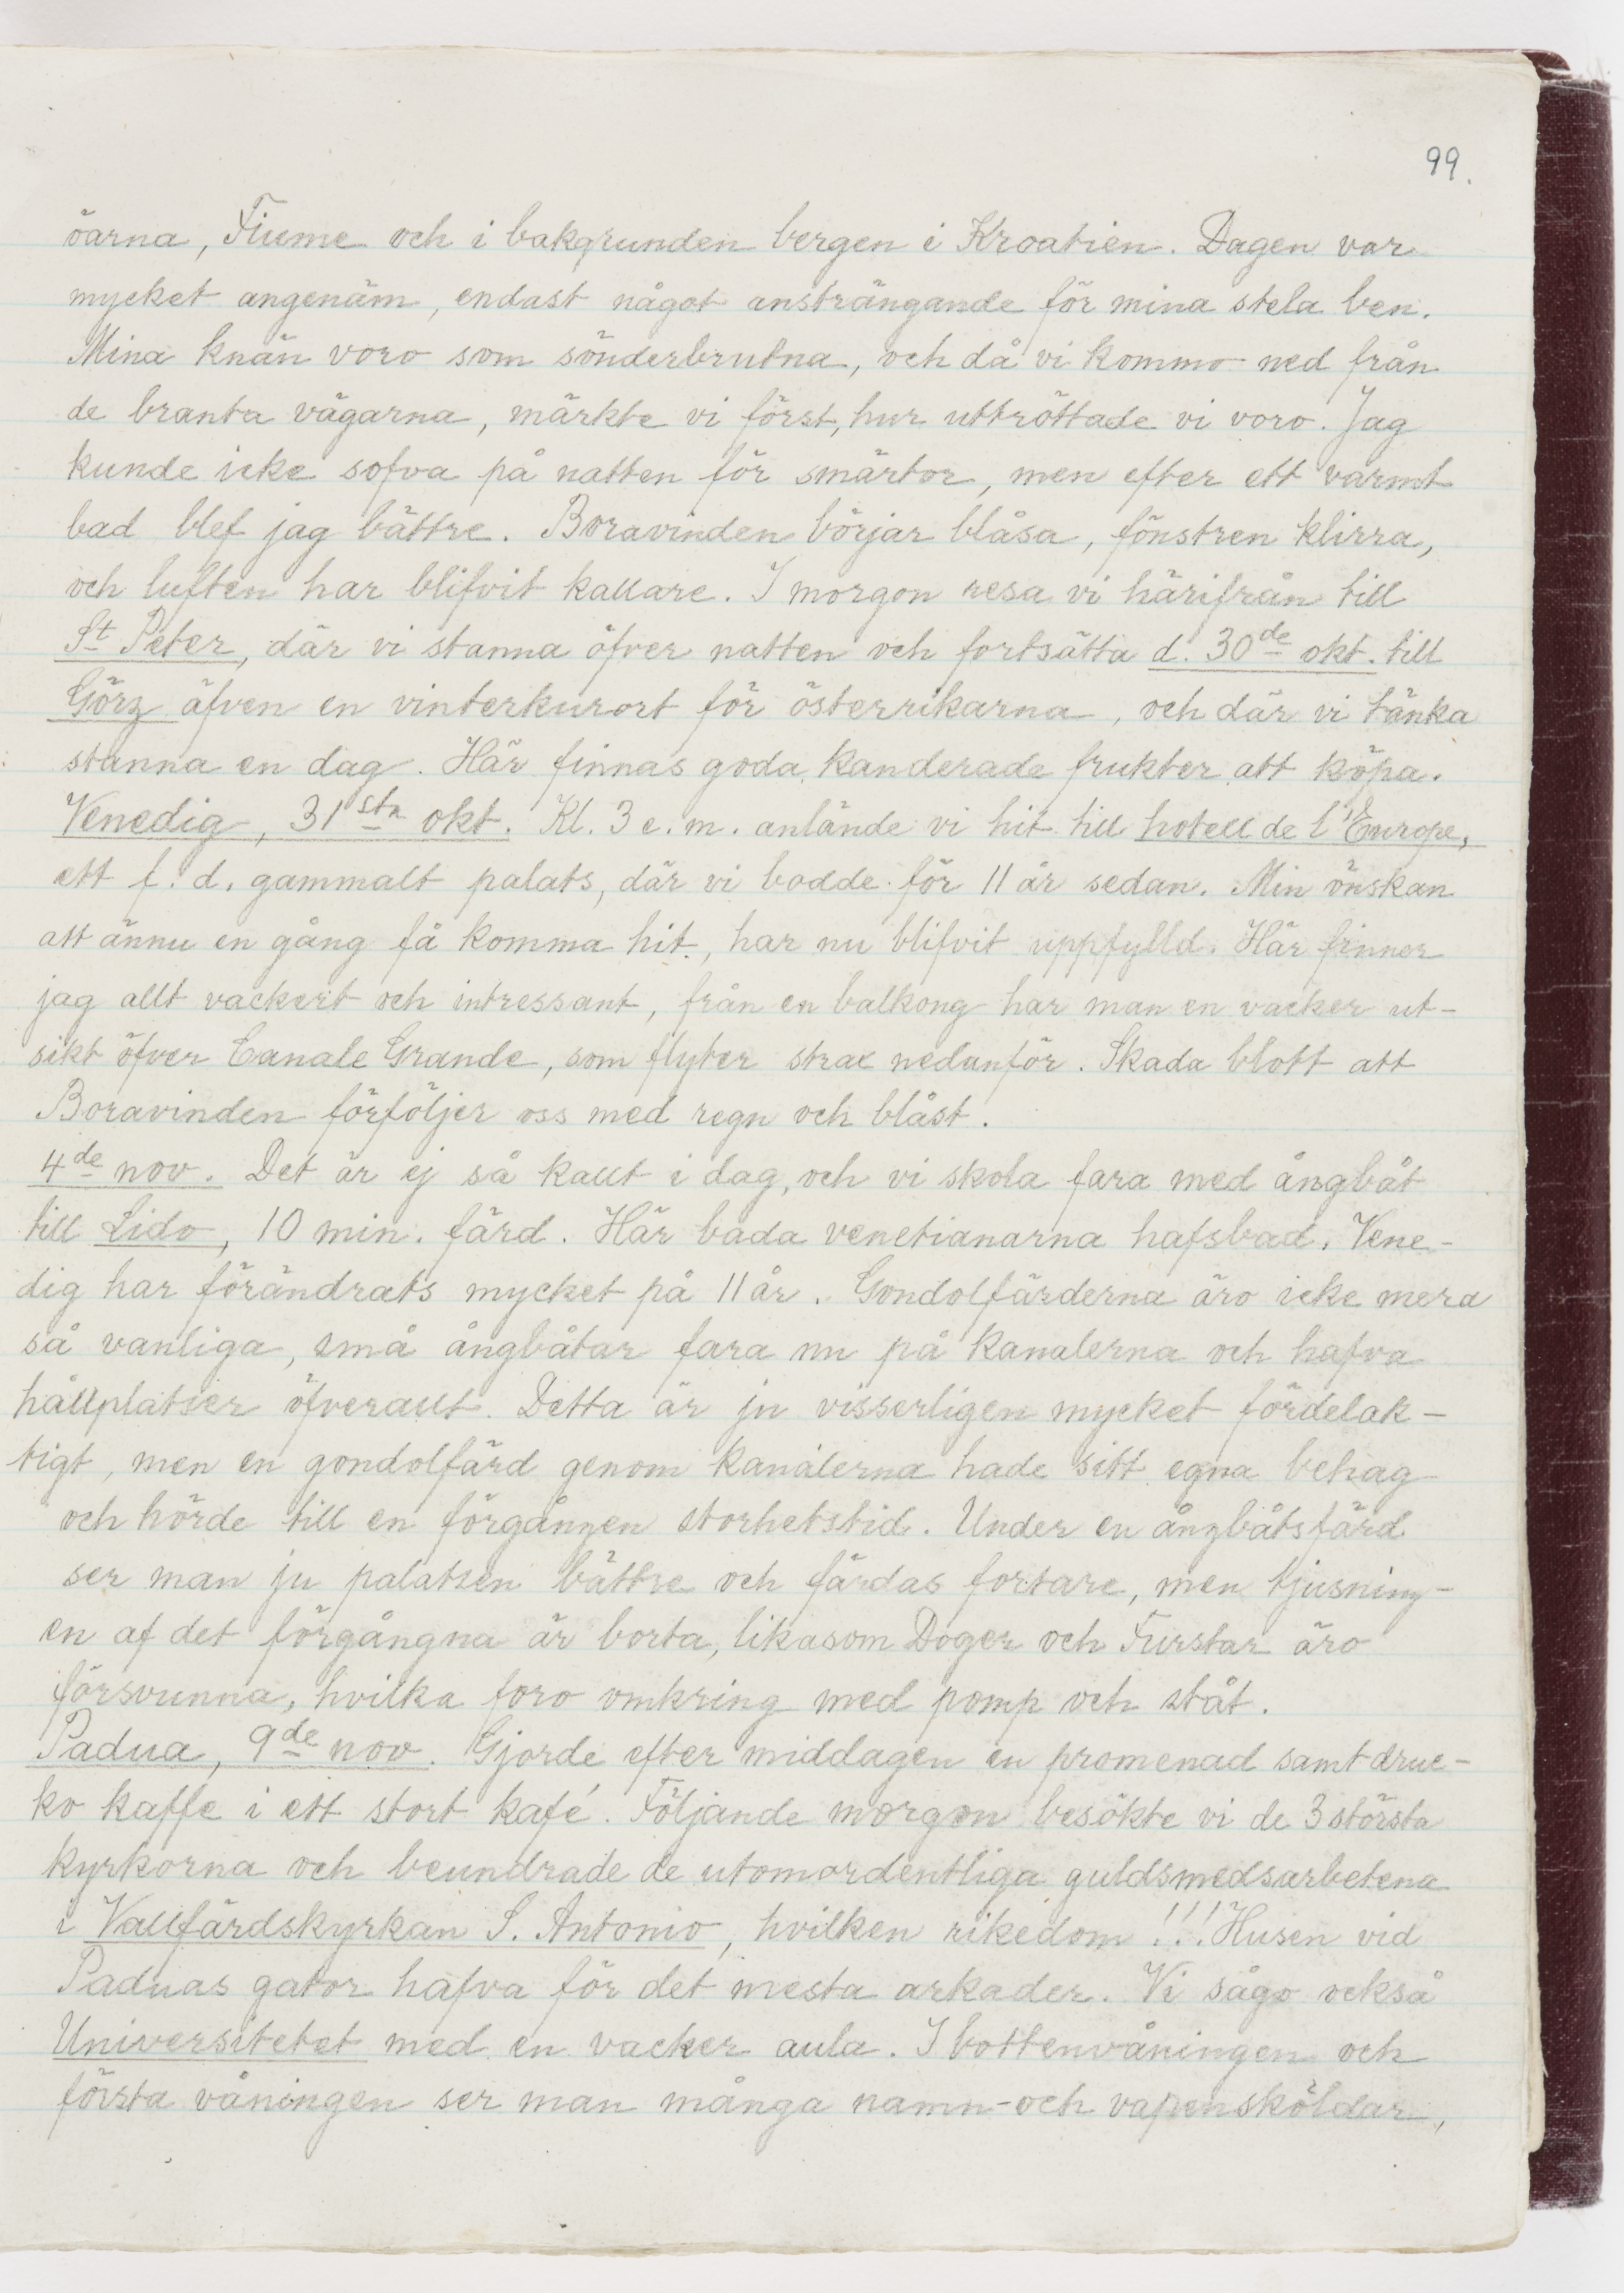 99.
öarna, Fiume och i bakgrunden bergen i Kroatien. Dagen var
mycket angenäm, endast något ansträngande för mina stela ben.
Mina knän voro som sönderbrutna, och då vi kommo ned från
de branta vägarna, märkte vi först, hur uttröttade vi voro. Jag
kunde icke sofva på natten för smärtor, men efter ett varmt
bad blef jag bättre. Boravinden börjar blåsa, fönstren klirra,
och luften har blifvit kallare. I morgon resa vi härifrån till
St Peter, där vi stanna öfver natten och fortsätta d. 30de okt. till
Görz äfven en vinterkurort för österrikarna, och där vi tänka
stanna en dag. Här finnas goda kanderade frukter att köpa.
Venedig, 31sta okt. Kl. 3 e. m. anlände vi hit till hotell de l'Europe,
ett f. d. gammalt palats, där vi bodde för 11 år sedan. Min önskan
att ännu en gång få komma hit, har nu blifvit uppfylld. Här finner
jag allt vackert och intressant, från en balkong har man en vacker ut-
sikt öfver Canale Grande, som flyter strax nedanför. Skada blott att
Boravinden förföljer oss med regn och blåst.
4de nov. Det är ej så kallt i dag, och vi skola fara med ångbåt
till Lido, 10 min. färd. Här bada venetianarna hafsbad. Vene-
dig har förändrats mycket på 11 år. Gondolfärderna äro icke mera
så vanliga, små ångbåtar fara nu på kanalerna och hafva
hållplatser öfverallt. Detta är ju visserligen mycket fördelak-
tigt, men en gondolfärd genom kanalerna hade sitt egna behag
och hörde till en förgången storhetstid. Under en ångbåtsfärd
ser man ju palatsen bättre och färdas fortare, men tjusning-
en af det förgångna är borta, likasom Doger och Furstar äro
försvunna, hvilka foro omkring med pomp och ståt.
Padua, 9de nov. Gjorde efter middagen en promenad samt druc-
ko kaffe i ett stort kafé. Följande morgon besökte vi de 3 största
kyrkorna och beundrade de utomordentliga guldsmedsarbetena
i Vallfärdskyrkan S. Antonio, hvilken rikedom!!! Husen vid
Paduas gator hafva för det mesta arkader. Vi sågo också
Universitetet med en vacker aula. I bottenvåningen och
första våningen ser man många namn- och vapensköldar,